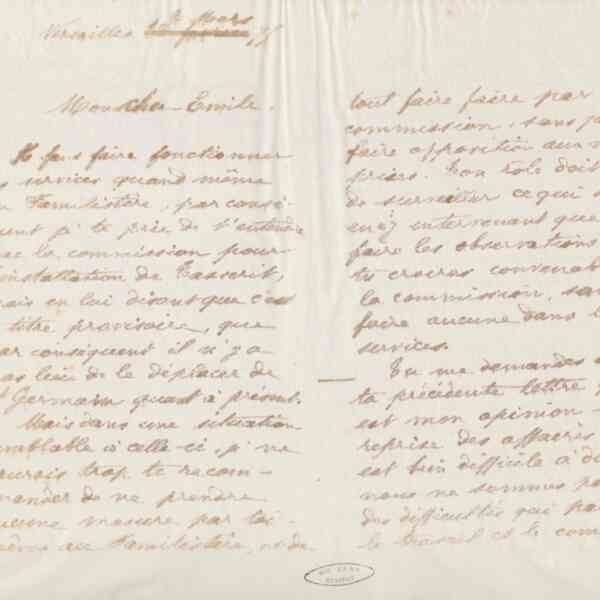 Versailles 4 Mars 71
Mon cher Emile.
Il faut faire fonctionner
services quand même
Familistère, par consé-
quent je te prie de t'entendre
avec la commission pour
l'installation de Tasserit,
mais en lui disant que c'est
titre provisoire, que
par conséquent il n'y a
pas lieu de le déplacer de
St Germain quant à présent.
Mais dans une situation
semblable à celle-ci, je ne
saurais trop te recom-
mander de ne prendre
aucune mesure par toi-
même au Familistère, et de
tout faire faire par
commission, sans
faire opposition aux
Ton rôle doit
de surveiller ce qui
en n'y intervenant que
faire les observations
tu croiras convenab
la commission, san
faire aucune dans l
services.
Tu me demandes
ta précédente lettre
est mon opinion
reprise des affaires
est bien difficile à d
nous ne sommes pa
des difficultés qui pa
le travail et le com